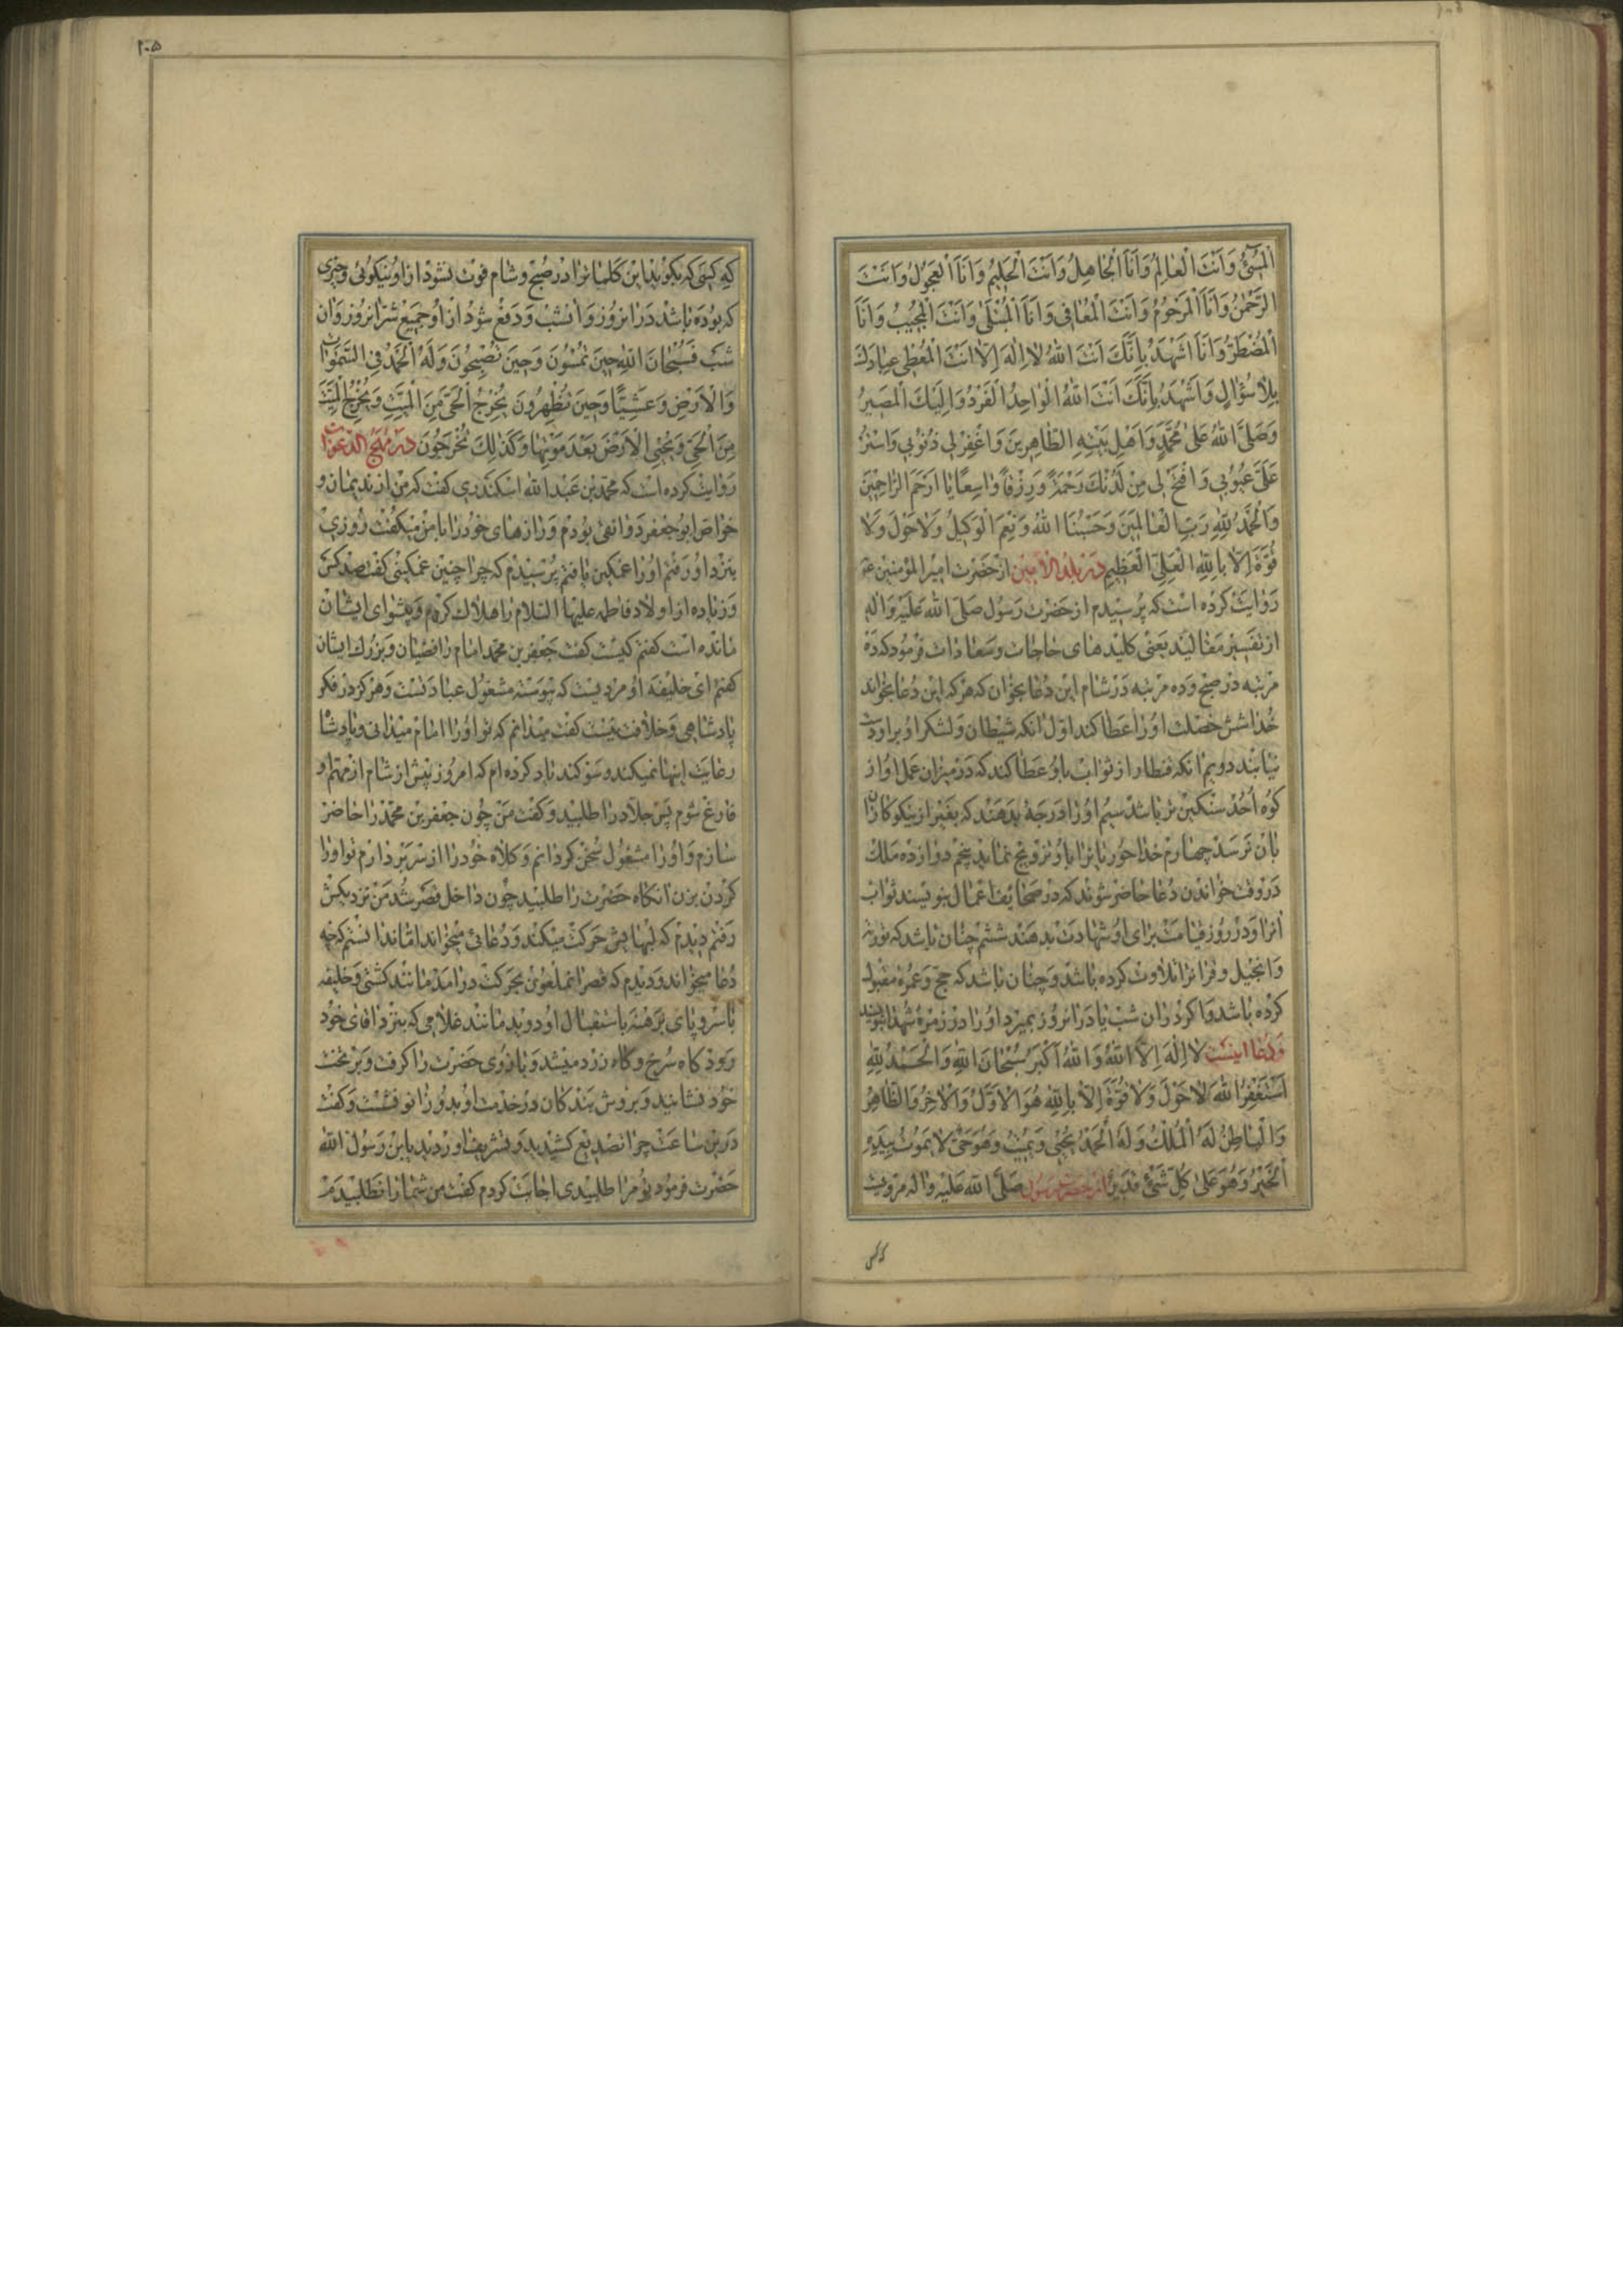 اَلْمُسِیءُ وَاَنْتَ الْعالِمُ وَاَنَا الْجاهِلُ وَاَنْتَ الْحَلیمُ وَاَنَا الْعَجُولُ وَاَنْتَ
الرَّحْمٰنُ وَاَنَا الْمَرْحُومُ وَاَنْتَ الْمُعافی وَاَنَا الْمُبْتَلی وَاَنْتَ الْمُجیبُ وَاَنَا
الْمُضْطَرُّ وَاَنَا اَشْهَدُ بِاَنَّكَ اَنْتَ اللهُ لا اِلٰهَ اِلّا اَنْتَ الْمُعْطی عِبادَكَ
بِلا سُؤالٍ وَاَشْهَدُ بِاَنَّكَ اَنْتَ اللهُ الْواحِدُ الْفَرْدُ وَاِلَیْكَ الْمَصیرُ
وَصَلَّی اللهُ عَلی مُحَمَّدٍ وَاَهْلِ بَیْتِهِ الطّاهِرینَ وَاغْفِرْلی ذُنُوبی وَاسْتُرْ
عَلَیَّ عُیُوبی وَافْتَحْ لی مِنْ لَدُنْكَ رَحْمَةً وَرِزْقاً واسِعاً یا اَرْحَمَ الرّاحِمینَ
وَالْحَمْدُ لِلّٰهِ رَبِّ الْعالَمینَ وَحَسْبُنَا اللهُ وَنِعْمَ الْوَکیلُ وَلا حَوْلَ وَلا
قُوَّةَ اِلّا بِاللهِ الْعَلِیِّ الْعَظیمِ در بلد الامین از حضرت امیر المؤمنین ع
روایت کرده است که پرسیدم از حضرت رسول صلی الله علیه واله
از تفسیر مقالید یعنی کلیدهای حاجات وسعادات فرمود که ده
مرتبه در صبح وده مرتبه در شام این دعا بخوان که هرکه این دعا بخواند
خدا شش خصلت اورا عطا کند اول انکه شیطان ولشکر او براو دست
نیابند دویم انکه قنطار از ثواب باو عطا کند که در میزان عمل او از
کوه احد سنکین تر باشد سیم اورا درجهٔ بدهند که بغیر از نیکوکاران
بان نرسد چهارم خدا حوریانرا باو تزویج نماید پنجم دوازده ملك
در وقت خواندن دعا حاضر شوند که در صحایف اعمال بنویسند ثواب
انرا ودر روز قیامت برای او شهادت بدهند ششم چنان باشد که توریة
وانجیل وقرانرا تلاوت کرده باشد وچنان باشد که حج وعمره مقبول
کرده باشد واکر دران شب یا درانروز بمیرد اورا در زمره شهدا بنویسند
ودعا اینست لا اِلٰهَ اِلَّا اللهُ وَاللهُ اَکْبَرُ سُبْحانَ اللهِ وَالْحَمْدُ لِلّٰهِ
اَسْتَغْفِرُ اللهَ لا حَوْلَ وَلا قُوَّةَ اِلّا بِاللهِ هُوَ الْاَوَّلُ وَالْاخِرُ وَالظّاهِرُ
وَالْباطِنُ لَهُ الْمُلْكُ وَلَهُ الْحَمْدُ یُحْیی وَیُمیتُ وَهُوَ حَیٌّ لا یَمُوتُ بِیَدِهِ
الْخَیْرُ وَهُوَ عَلی کُلِّ شَیْءٍ قَدیرٌ از حضرت رسول صلی الله علیه واله مرویست
۱۰۵
که کسی که بکوید این کلماترا در صبح وشام فوت نشود از او نیکوئی وخیری
که بوده باشد درانروز وانشب ودفع شود از او جمیع شر انروز وان
شب فَسُبْحانَ اللهِ حینَ تُمْسُونَ وَحینَ تُصْبِحُونَ وَلَهُ الْحَمْدُ فِی السَّمٰواتِ
وَالْاَرْضِ وَعَشِیّاً وَحینَ تُظْهِرُونَ یُخْرِجُ الْحَیَّ مِنَ الْمَیِّتِ وَیُخْرِجُ الْمَیِّتَ
مِنَ الْحَیِّ وَیُحْیِی الْاَرْضَ بَعْدَ مَوْتِها وَکَذٰلِكَ تُخْرَجُونَ در مهج الدعوات
روایت کرده است که محمد بن عبد الله اسکندری کفت که من از ندیمان و
خواص ابو جعفر دوانقی بودم ورازهای خودرا با من میکفت روزی
بنزد او رفتم اورا غمکین یافتم پرسیدم که چرا چنین غمکینی کفت صد کس
وزیاده از اولاد فاطمه علیها السلام را هلاك کردم وپیشوای ایشان
مانده است کفتم کیست کفت جعفر بن محمد امام رافضیان وبزرك ایشان
کفتم ای خلیفه او مردیست که پیوسته مشغول عبادتست وهرکز در فکر
پادشاهی وخلافت نیست کفت میدانم که تو اورا امام میدانی وپادشا
رعایت اینها نمیکند وسوکند یاد کرده ام که امروز پیش از شام از مهم او
فارغ شوم پس جلاد را طلبید وکفت من چون جعفر بن محمد را حاضر
سازم واورا مشغول سخن کردانم وکلاه خودرا از سر بردارم تو اورا
کردن بزن انکاه حضرت را طلبید چون داخل قصر شد من نزدیکش
رفتم دیدم که لبهایش حرکت میکند ودعائی میخواند اما ندانستم که چه
دعا میخواند ودیدم که قصر انملعون بحرکت درامد مانند کشتی وخلیفه
با سر وپای برهنه باستقبال او دوید مانند غلامی که بنزد اقای خود
رود کاه سرخ وکاه زرد میشد وبازوی حضرت را کرفت وبر تخت
خود نشانید وبروش بندکان در خدمت او بدو زانو نشست وکفت
درین ساعت چرا تصدیع کشیدید وتشریف اوردید یابن رسول الله
حضرت فرمود تو مرا طلبیدی اجابت کردم کفت من شما را نطلبیدم